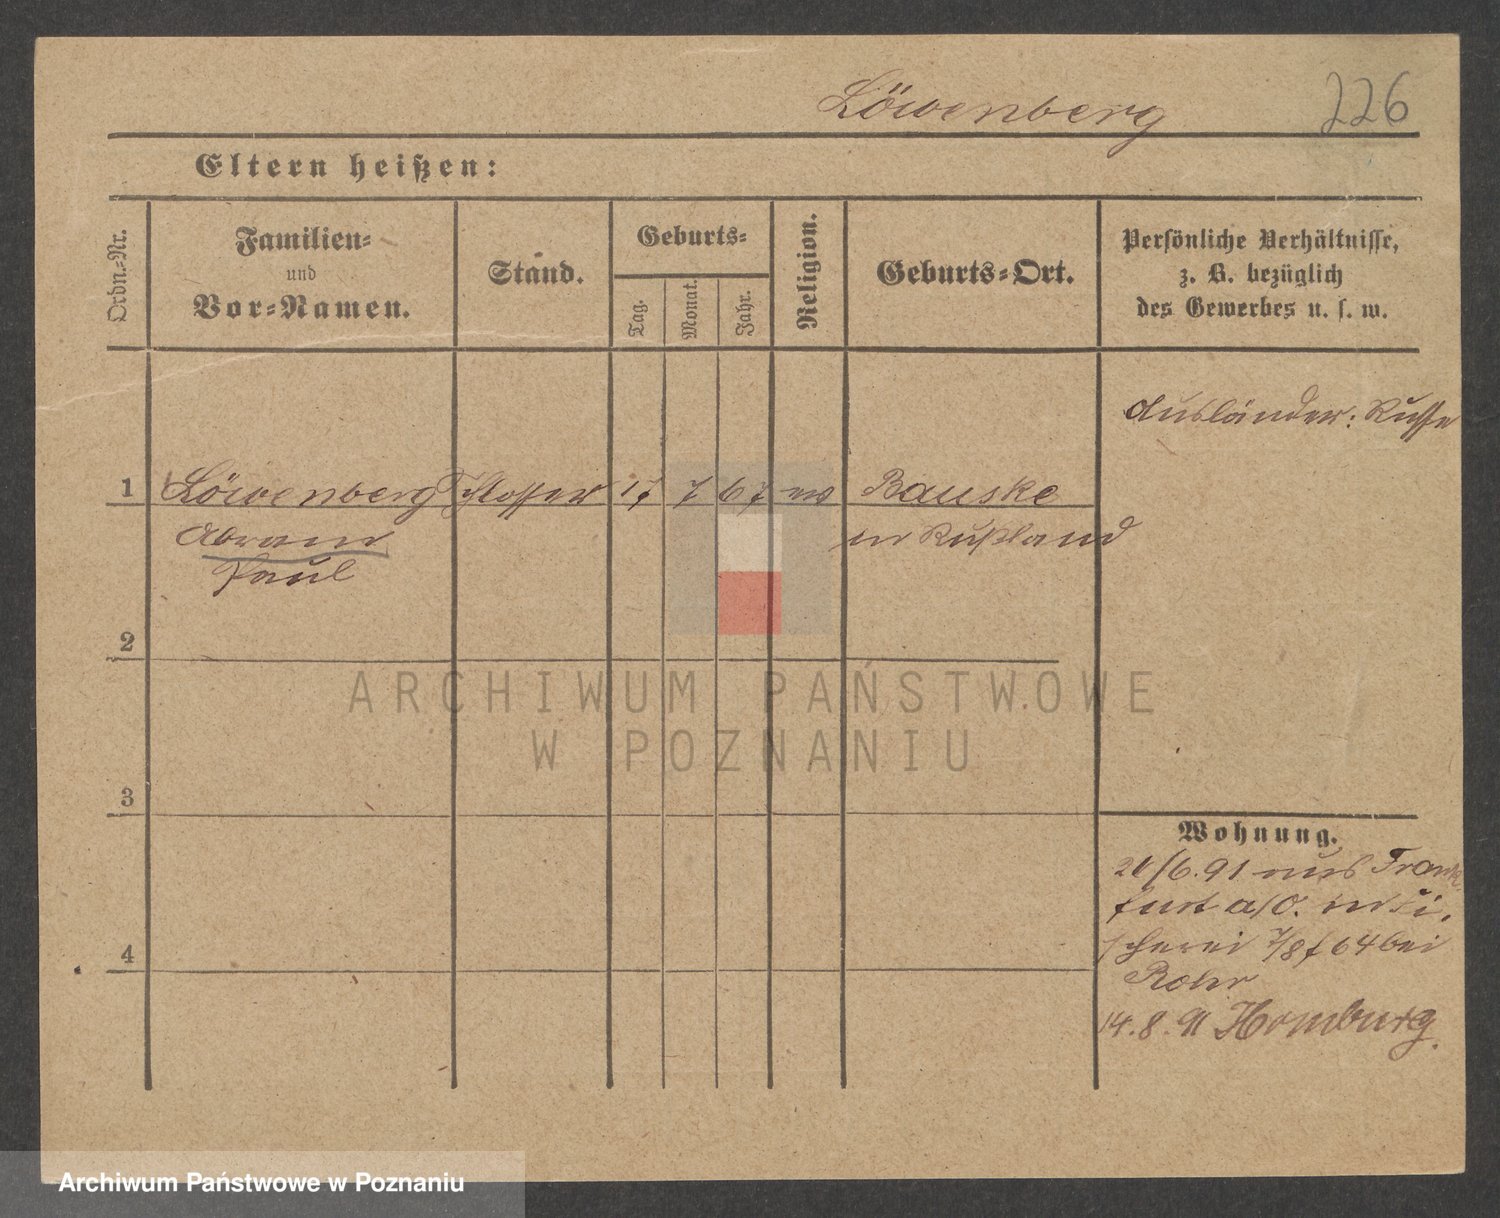 Löwenberg 226
Eltern heißen:
Ordn.-Nr.
Familien-
und
Vor-Namen.
Stand.
Geburts-
Tag.
Monat.
Jahr.
Religion.
Geburts-Ort.
Persönliche Verhältnisse,
z. B. bezüglich
des Gewerbes u. s. w.
Ausländer: Russe
1 Löwenberg Schlosser 17 7 67 Bauske
Abram in Rußland
Paul
2
ARCHIWUM PAŃSTWOWE
W POZNANIU
3
Wohnung.
/6.91 aus Frank
furt a/O. in Fi,
scherei 7/8 f 64 bei
4
Rohr
14.8.91 Homburg.
Archiwum Państwowe w Poznaniu